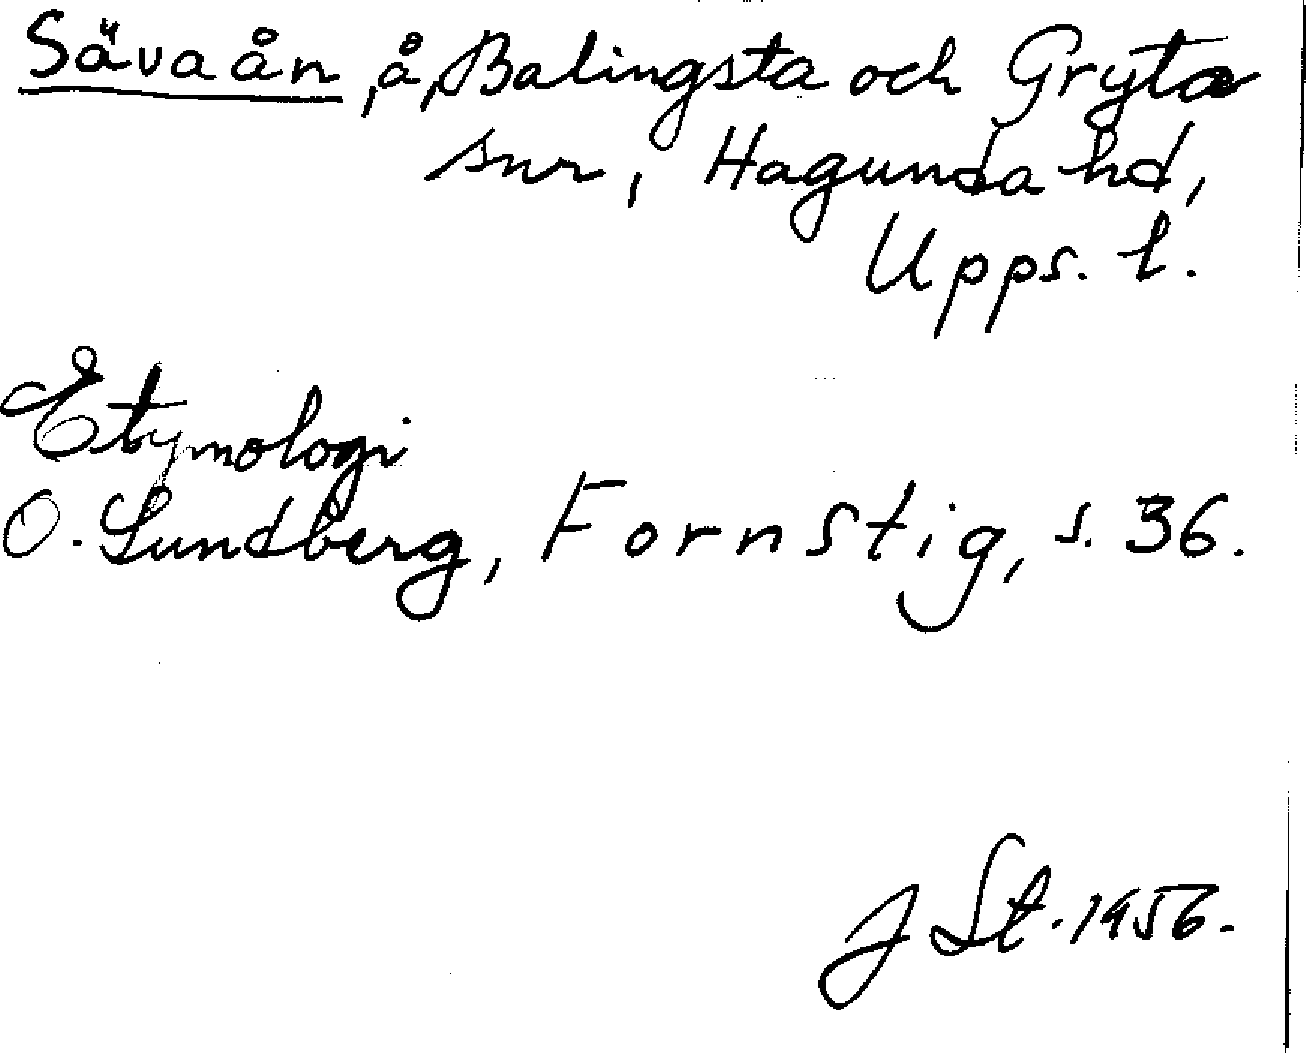 Sävaån, å, Balingsta och Gryta
snr, Hagunda hd,
Upps. l.
Etymologi
O. Lundberg, Fornstig, s. 36.
J St. 1956.